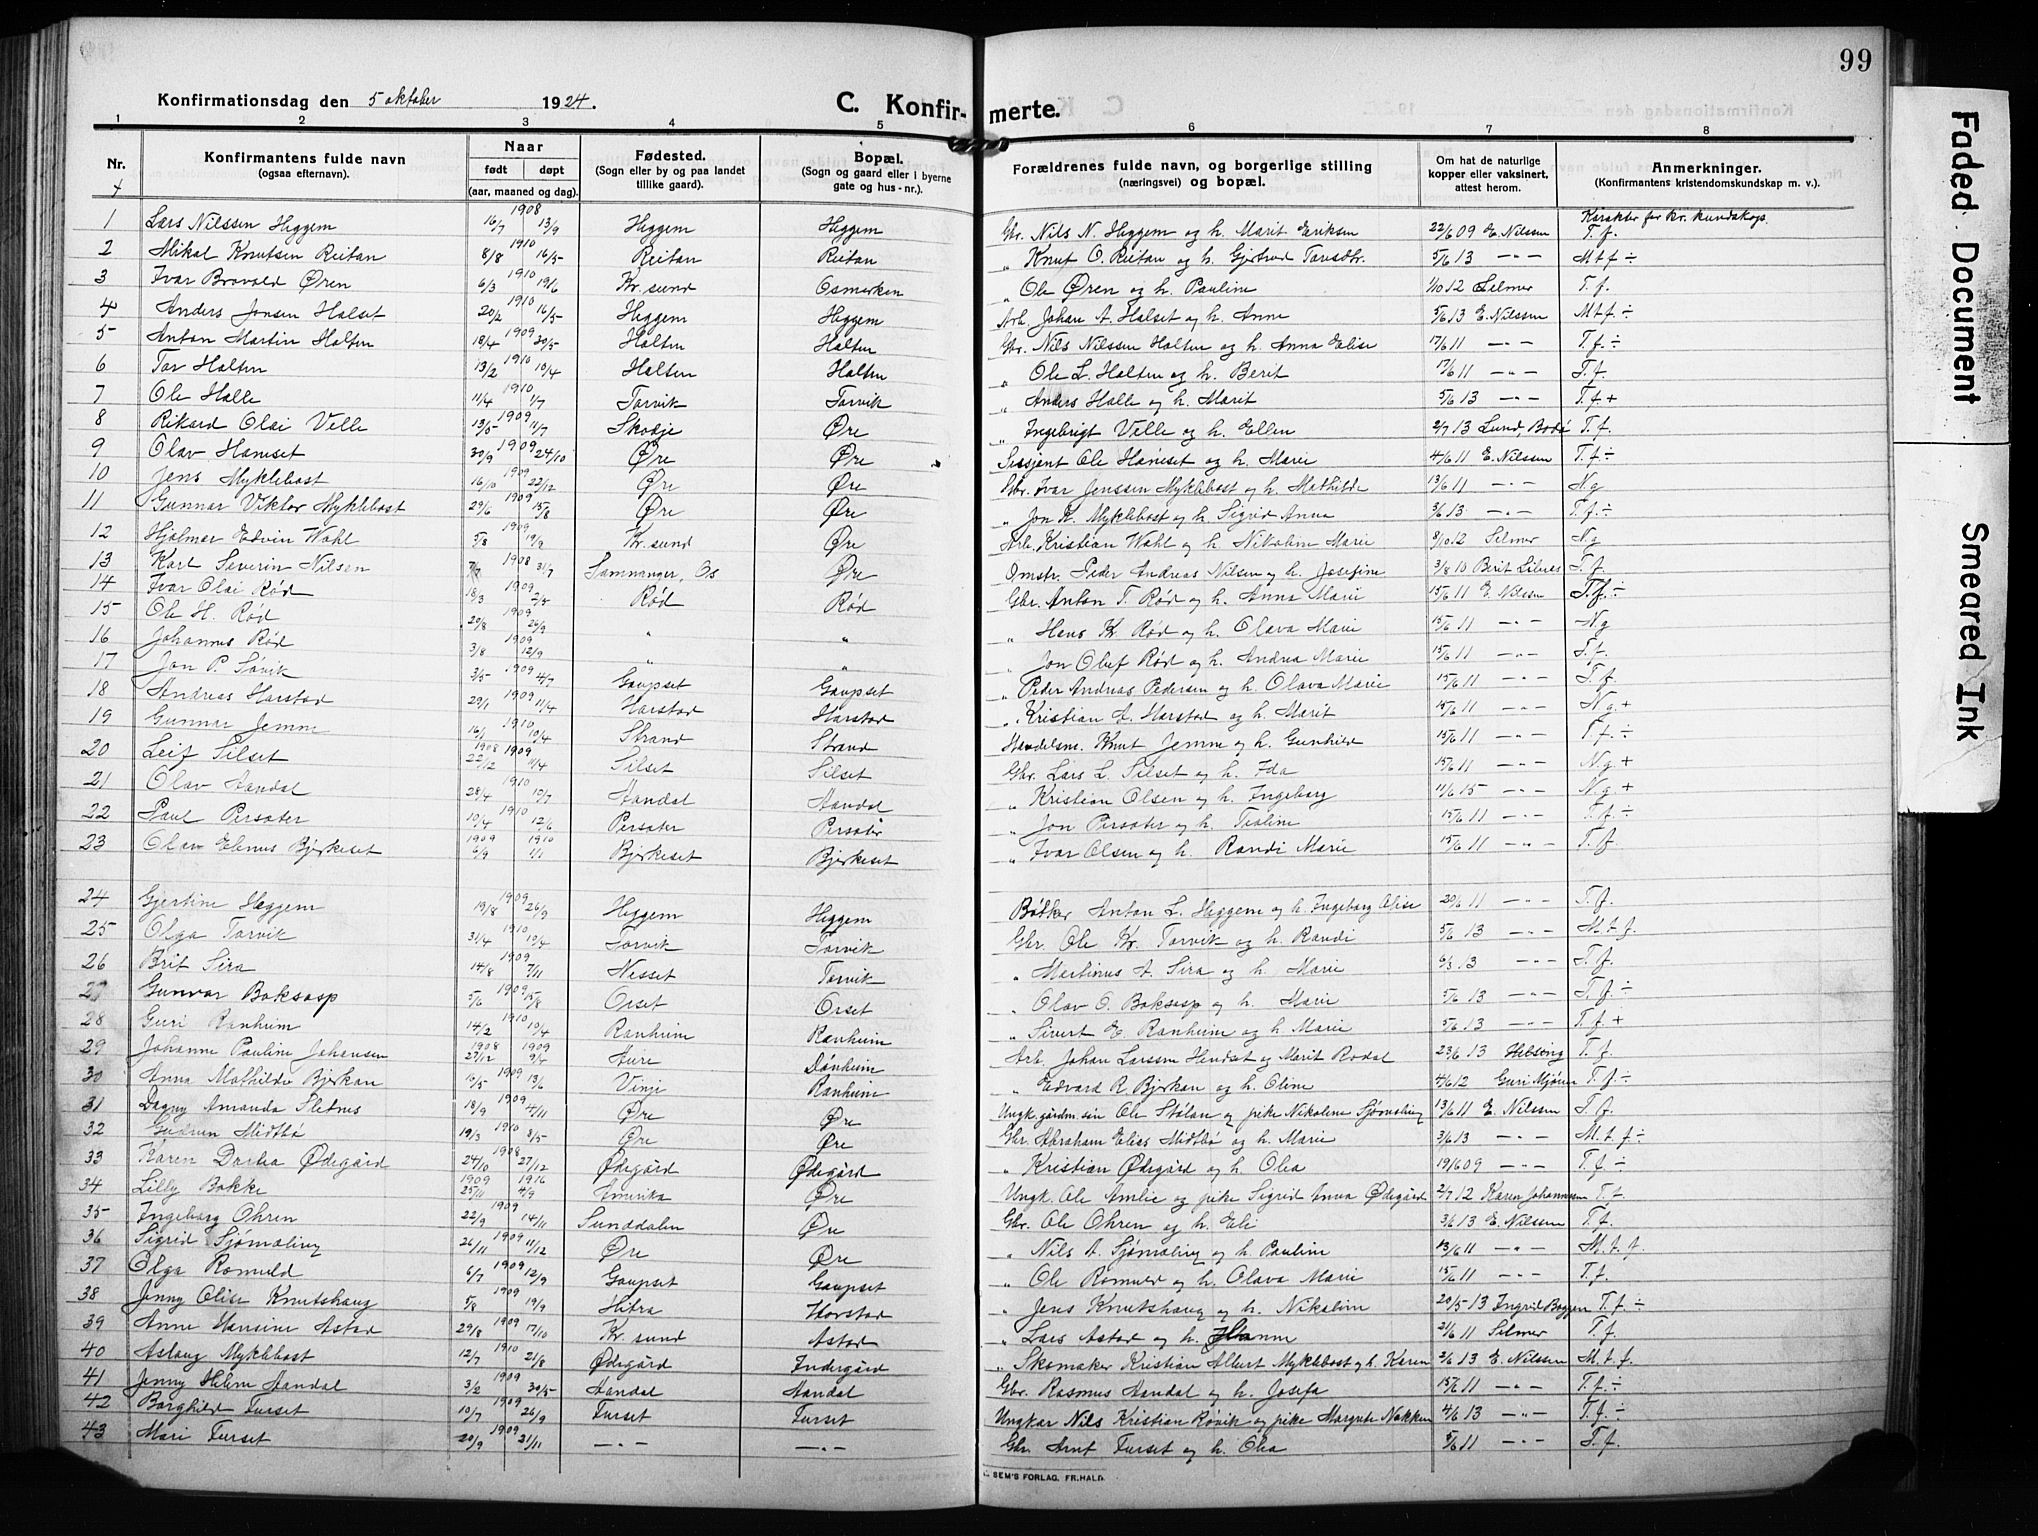 99
Konfirmationsdag den 5 oktober 1924.
C. Konfirmerte.
1 2 3 4 5 6 7 8
Nr.
Konfirmantens fulde navn
(ogsaa efternavn).
Naar
født døpt
(aar, maaned og dag).
Fødested.
(Sogn eller by og paa landet
tillike gaard).
Bopæl.
(Sogn og gaard eller i byerne
gate og hus-nr.).
Forældrenes fulde navn, og borgerlige stilling
(næringsvei) og bopæl.
Om hat de naturlige
kopper eller vaksinert,
attest herom.
Anmerkninger.
(Konfirmantens kristendomskundskap m. v.).
Karakter for kr. kundskap.
1 Lars Nilssen Heggem 16/7 1908 13/9 Heggem Heggem Gbr. Nils N. Heggem og h. Marit Eriksen 22/6 09 E. Nilssen T. f.
2 Mikal Knutsen Reitan 8/8 1910 16/5 Reitan Reitan " Knut O. Reitan og h. Gjertrud 5/6 13 -"- M t f ÷
3 Ivar Brovold Øren 6/3 1910 19/6 Kr. sund Osmarken " Ole Øren og h. Pauline 1/10 12 Selmer T. f.
4 Anders Jonsen Halset 20/2 1910 16/5 Heggem Heggem Arb. Johan A. Halset og h. Anne 5/6 13 E. Nilssen M t f ÷
5 Anton Martin Halten 18/4 1909 20/5 Halten Halten Gbr. Nils Nilssen Halten og h. Anna Elise 17/6 11 -"- T. f ÷
6 Tor Halten 13/2 1910 10/4 Halten Halten " Ole L. Halten og h. Berit 17/6 11 -"- T. f.
7 Ole Halle 11/4 1910 1/7 Torvik Torvik " Anders Halle og h. Marit 5/6 13 -"- T. f. +
8 Rikard Olai Velle 13/5 1909 11/7 Skodje Øre " Ingebrigt Velle og h. Ellen 2/7 13 Lund, Bodø T. f.
9 Olav Hanset 30/9 1909 24/10 Øre Øre Ole Hanset og h. Marie 4/6 11 E. Nilssen T. f ÷
10 Jens Myklebost 16/10 1909 22/12 Øre Øre Gbr. Ivar Jenssen Myklebost og h. Mathilde 13/6 11 -"- N.g
11 Gunnar Viktor Myklebost 29/6 1909 15/8 Øre Øre " Jon K. Myklebost og h. Sigrid Anna 3/6 13 -"- T. f. ÷
12 Hjalmar Edvin Wahl 5/8 1909 19/9 Kr. sund Øre Arb. Kristian Wahl og h. Nikoline Marie 8/10 12 Selmer N.g
13 Karl Severin Nilsen 7/7 1908 31/7 Samnanger, Os Øre Omstr. Peder Andreas Nilsen og h. Josefine 3/8 10 Berit T. f
14 Ivar Olai Rød 18/3 1909 2/5 Rød Rød Gbr. Anton T. Rød og h. Anna Marie 15/6 11 E. Nilssen T. f. ÷
15 Ole H. Rød 20/8 1909 26/9 " " " Hans Kr. Rød og h. Olava Marie 15/6 11 -"- N.g
16 Johannes Rød 3/8 1909 12/9 " " " Jon Oluf Rød og h. Andrea Marie 15/6 11 -"- T. f.
17 Jon P. Søvik 3/5 1909 4/7 Gaupset Gaupset " Peder Andreas Pedersen og h. Olava Marie 15/6 11 -"- T. f
18 Andreas Harstad 29/1 1909 11/4 Harstad Harstad " Kristian A. Harstad og h. Marit 15/6 11 -"- N.g. +
19 Gunnar Jemne 16/1 1910 10/4 Strand Strand Handelsm. Knut Jemne og h. Gunhild 15/6 11 -"- T. f. ÷
20 Leif Silset 1908 22/12 1909 11/4 Silset Silset Gbr. Lars L. Silset og h. Ida 15/6 11 -"- N.g. +
21 Olav Aandal 28/4 1910 10/7 Aandal Aandal " Kristian Olsen og h. Ingeborg 11/6 15 -"- N.g. +
22 Paul Persater 10/4 1910 12/6 Persater Persater " Jon Persater og h. 15/6 11 -"- T. f ÷
23 Olav Elenus Bjerkeset 1909 6/9 1910 1/1 Bjerkeset Bjerkeset " Ivar Olsen og h. Randi Marie 15/6 11 -"- T. f
24 Gjertine Heggem 19/8 1909 26/9 Heggem Heggem Bøtker Anton L. Heggem og h. Ingeborg Olise 20/6 11 T. f.
25 Olga Torvik 31/4 1910 10/4 Torvik Torvik Gbr. Ole Kr. Torvik og h. Randi 5/6 13 -"- M. t. f.
26 Brit Sira 14/8 1909 7/11 Nesset Torvik " Martinus A. Sira og h. Marie 6/3 13 -"- T. f.
27 Gunvor Boksasp 5/6 1909 15/8 Orset Orset " Olav O. Boksasp og h. Marie 5/6 13 -"- T. f ÷
28 Guri Ranheim 14/2 1910 10/4 Ranheim Ranheim " Sivert E. Ranheim og h. Marie 5/6 13 -"- T. f +
29 Johanne Pauline Johansen 1908 27/12 1909 9/4 Aure Dønheim Arb. Johan Larssen Hendset og Marit Rodal 23/6 13 T. f.
30 Anna Mathilde Bjerkan 10/5 1909 13/6 Vinje Ranheim " Edvard R. Bjerkan og h. Oline 4/6 12 Guri T. f ÷
31 Dagny Amanda Sletnes 18/9 1909 4/11 Øre Øre Ungk. gårdm. søn Ole Stølan og pike Nikoline Sjømæling 13/6 11 E. Nilssen T. f.
32 Gudrun Midtbø 19/3 1910 8/5 Øre Øre Gbr. Abraham Elias Midtbø og h. Marie 3/6 13 -"- M. t. f ÷
33 Karen Dorthea Ødegård 24/10 1908 27/12 Ødegård Ødegård " Kristian Ødegård og h. Olea 19/6 09 -"- T. f. ÷
34 Lilly Bakke 1909 25/11 1916 4/9 Amerika Øre Ungk. Ole Amlie og pike Sigrid Anna Ødegård 2/7 12 Karen Johannesen T. f.
35 Ingeborg Ohren 22/9 1909 14/11 Sunddalen Øre Gbr. Ole Ohren og h. Eli 3/6 13 E. Nilssen T. f.
36 Sigrid Sjømæling 26/11 1909 11/12 Øre Øre " Nils A. Sjømæling og h. Pauline 13/6 11 -"- M. t. f.
37 Olga Romuld 6/7 1909 12/9 Gaupset Gaupset " Ole Romuld og h. Olava Marie 15/6 11 -"- T. f.
38 Jenny Olise Knutshaug 5/8 1909 19/9 Hitra Horstad " Jens Knutshaug og h. Nikoline 20/5 13 Ingrid T. f. ÷
39 Anne Hansine Astad 29/8 1909 17/10 Kr. sund Astad " Lars Astad og h. Hanne 21/6 11 Selmer T. f.
40 Aslaug Myklebost 12/7 1910 21/8 Ødegård Indergård " Skomaker Kristian Albert Myklebost og h. Karen 2/6 13 E. Nilssen M. t. f.
41 Jenny Helene Aandal 3/2 1909 20/5 Aandal Aandal Gbr. Rasmus Aandal og h. Josefa 15/6 11 -"- T. f. ÷
42 Borghild Furset 10/7 1909 26/9 Furset Furset Ungkar Nils Kristian Røvik og pike Margrete Nakken 4/6 13 -"- T. f. ÷
43 Mari Furset 20/9 1909 21/11 -"- -"- Gbr. Arnt Furset og h. Olea 5/6 11 -"- T. f.
SEM'S FORLAG, FR.HALD.
Faded Document
Smeared Ink